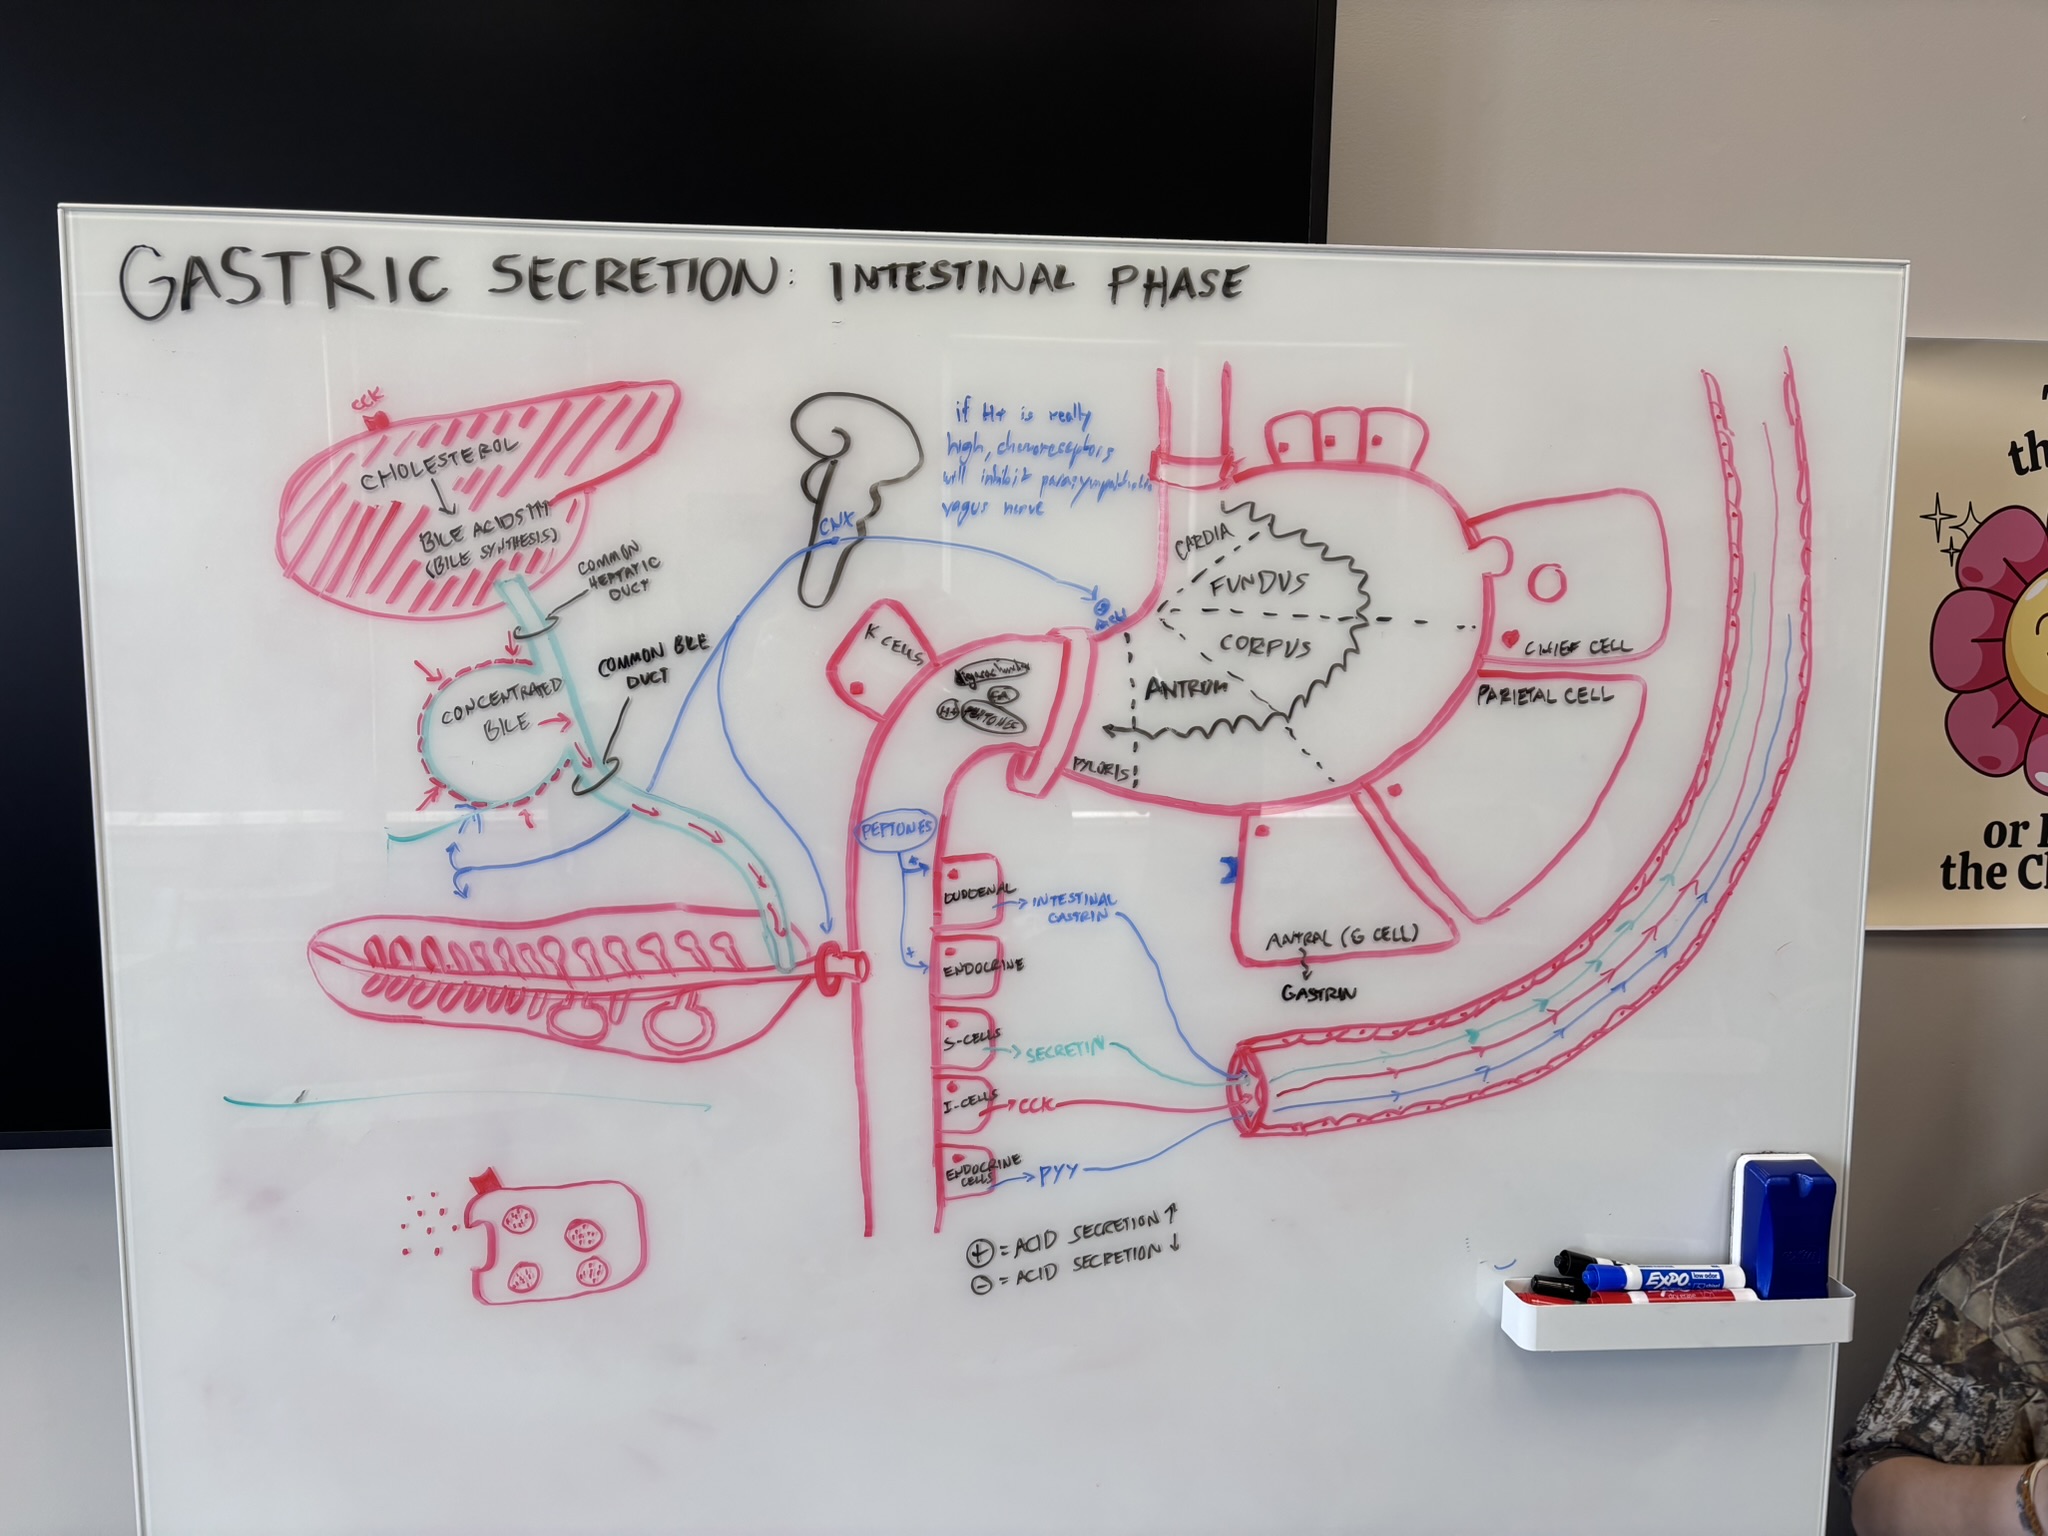 GASTRIC SECRETION: INTESTINAL PHASE
CCK
CHOLESTEROL
BILE ACIDS
(BILE SYNTHESIS)
COMMON
HEPTATIC
DUCT
COMMON BILE
DUCT
CONCENTRATED
BILE
CNX
if H+ is really
high, chemoreceptors
will inhibit parasympathetic
vagus nerve
K CELLS
H+
PEPTONES
CARDIA
FUNDUS
CORPUS
ANTRUM
PYLORIS
CHIEF CELL
PARIETAL CELL
ANTRAL (G CELL)
GASTRIN
PEPTONES
+
DUODENAL
INTESTINAL
GASTRIN
ENDOCRINE
S-CELLS
SECRETIN
I-CELLS
CCK
ENDOCRINE
CELLS
PYY
+ = ACID SECRETION ↑
- = ACID SECRETION ↓
EXPO
low odor
th
or
the Ch